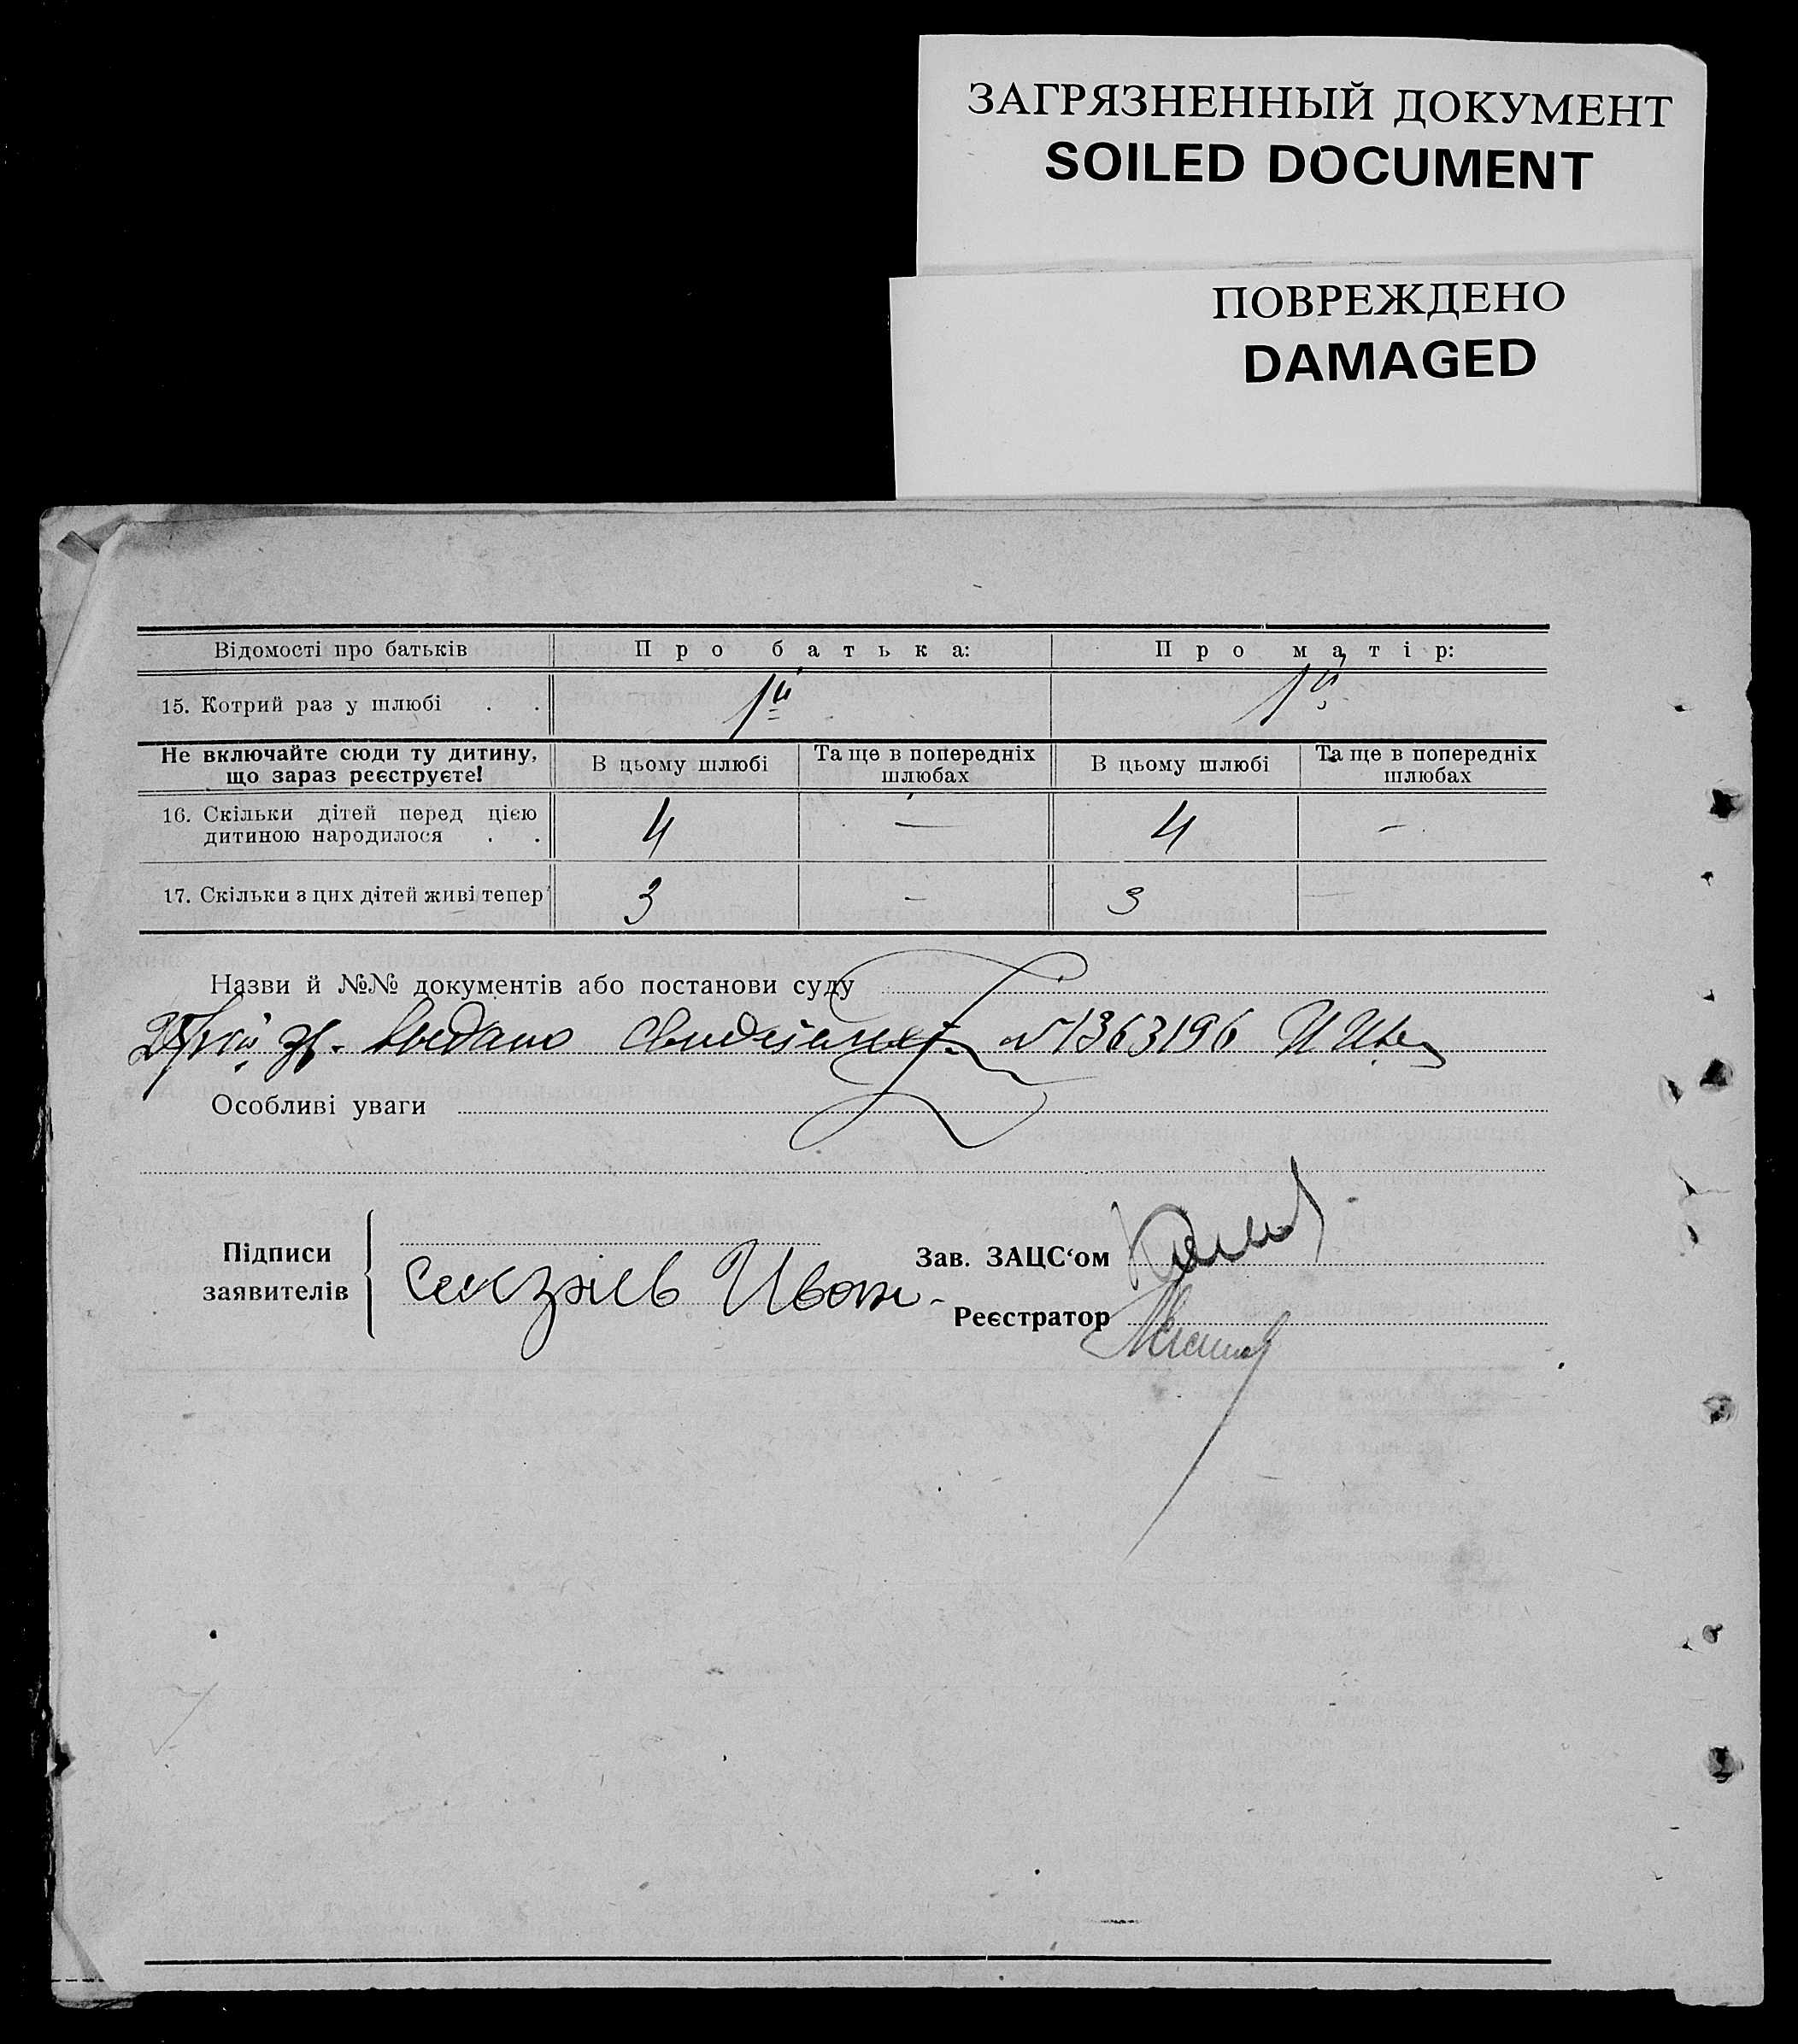 ЗАГРЯЗНЕННЫЙ ДОКУМЕНТ
SOILED DOCUMENT
ПОВРЕЖДЕНО
DAMAGED
Відомості про батьків Про батька: Про матір:
15. Котрий раз у шлюбі . . 1й 1й
Не включайте сюди ту дитину, що зараз реєструєте! В цьому шлюбі Та ще в попередніх шлюбах В цьому шлюбі Та ще в попередніх шлюбах
16. Скільки дітей перед цією
дитиною народилося . . 4 — 4 —
17. Скільки з цих дітей живі тепер 3 — 3 —
Назви й №№ документів або постанови суду
№1363196
Особливі уваги
Підписи
заявителів
Иван
Зав. ЗАЦС‘ом
Реєстратор